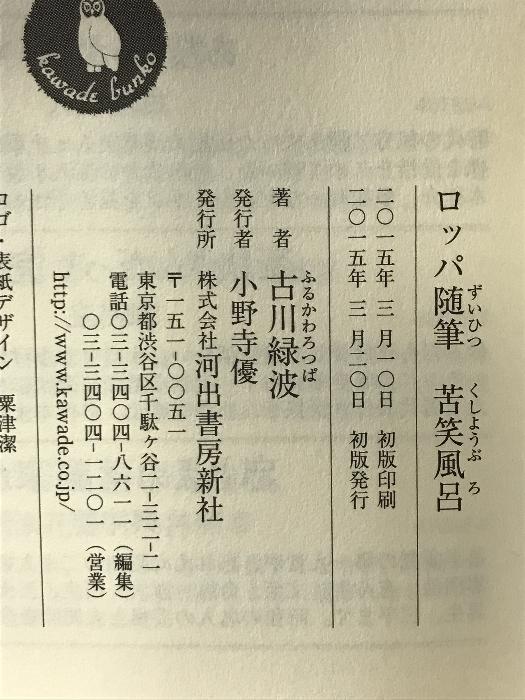 kawade bunko
ロッパ随筆　苦笑風呂
ずいひつ　くしょうぶろ
二〇一五年　三　月一〇日　初版印刷
二〇一五年　三　月二〇日　初版発行
著　者　古川緑波
ふるかわろっぱ
発行者　小野寺優
発行所　株式会社河出書房新社
〒一五一-〇〇五一
東京都渋谷区千駄ヶ谷二-三二-二
電話〇三-三四〇四-八六一一（編集）
〇三-三四〇四-一二〇一（営業）
http://www.kawade.co.jp/
ロゴ・表紙デザイン　粟津潔